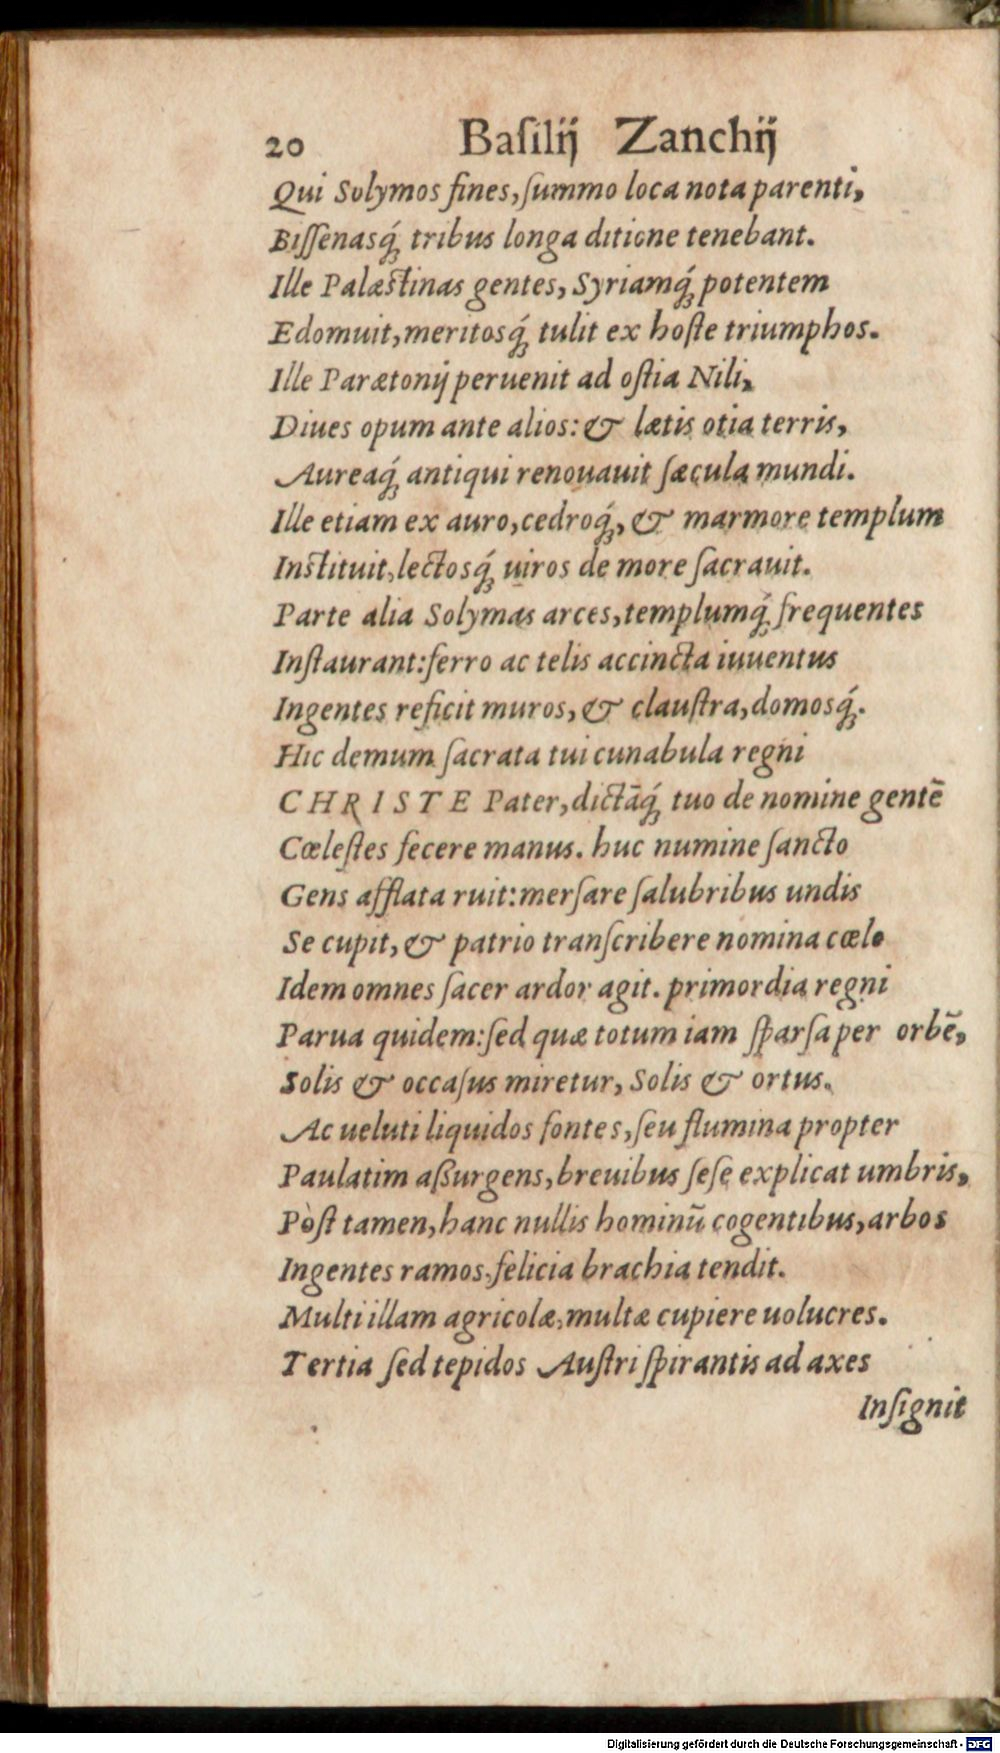 20 Baſilij Zanchij
Qui Solymos fines, ſummo loca nota parenti,
Biſſenasq́; tribus longa ditione tenebant.
Ille Palæſtinas gentes, Syriamq́; potentem
Edomuit, meritosq́; tulit ex hoſte triumphos.
Ille Parætonij peruenit ad oſtia Nili,
Diues opum ante alios: & lætis otia terris,
Aureaq́; antiqui renouauit ſæcula mundi.
Ille etiam ex auro, cedroq́;, & marmore templum
Inſtituit, lectosq́; uiros de more ſacrauit.
Parte alia Solymas arces, templumq́; frequentes
Inſtaurant: ferro ac telis accincta iuuentus
Ingentes reficit muros, & clauſtra, domosq́;.
Hic demum ſacrata tui cunabula regni
CHRISTE Pater, dictāq́; tuo de nomine gentē
Cœleſtes fecere manus. huc numine ſancto
Gens afflata ruit: merſare ſalubribus undis
Se cupit, & patrio tranſcribere nomina cœlo
Idem omnes ſacer ardor agit. primordia regni
Parua quidem: ſed quæ totum iam ſparſa per orbē,
Solis & occaſus miretur, Solis & ortus.
Ac ueluti liquidos fontes, ſeu flumina propter
Paulatim aßurgens, breuibus ſeſe explicat umbris,
Pòſt tamen, hanc nullis hominū cogentibus, arbos
Ingentes ramos, felicia brachia tendit.
Multi illam agricolæ, multæ cupiere uolucres.
Tertia ſed tepidos Auſtri ſpirantis ad axes
Inſignit
Digitalisierung gefördert durch die Deutsche Forschungsgemeinschaft - DFG